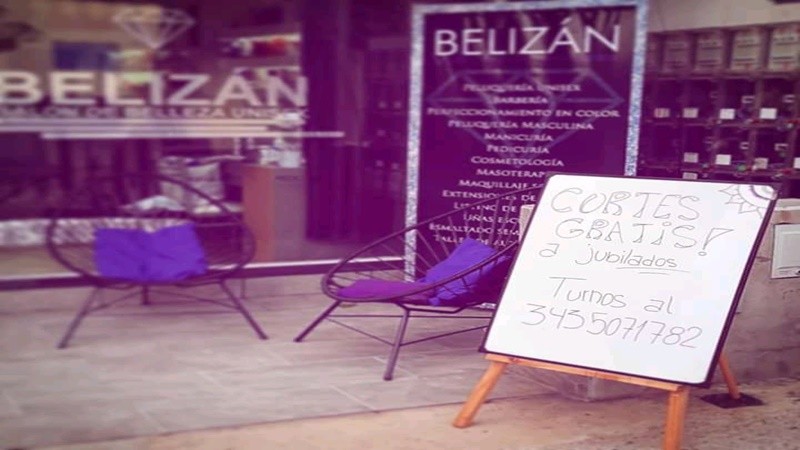 BELIZÁN
SALÓN DE BELLEZA UNISEX
BELIZÁN
PELUQUERÍA UNISEX
BARBERÍA
PERFECCIONAMIENTO EN COLOR
PELUQUERÍA MASCULINA
MANICURÍA
PEDICURÍA
COSMETOLOGÍA
MASOTERAP
MAQUILLAJE
EXTENSIONES DE
UÑAS
ESMALTADO
TALLER DE
CORTES
GRATIS!
a jubilados
Turnos al
3435071782